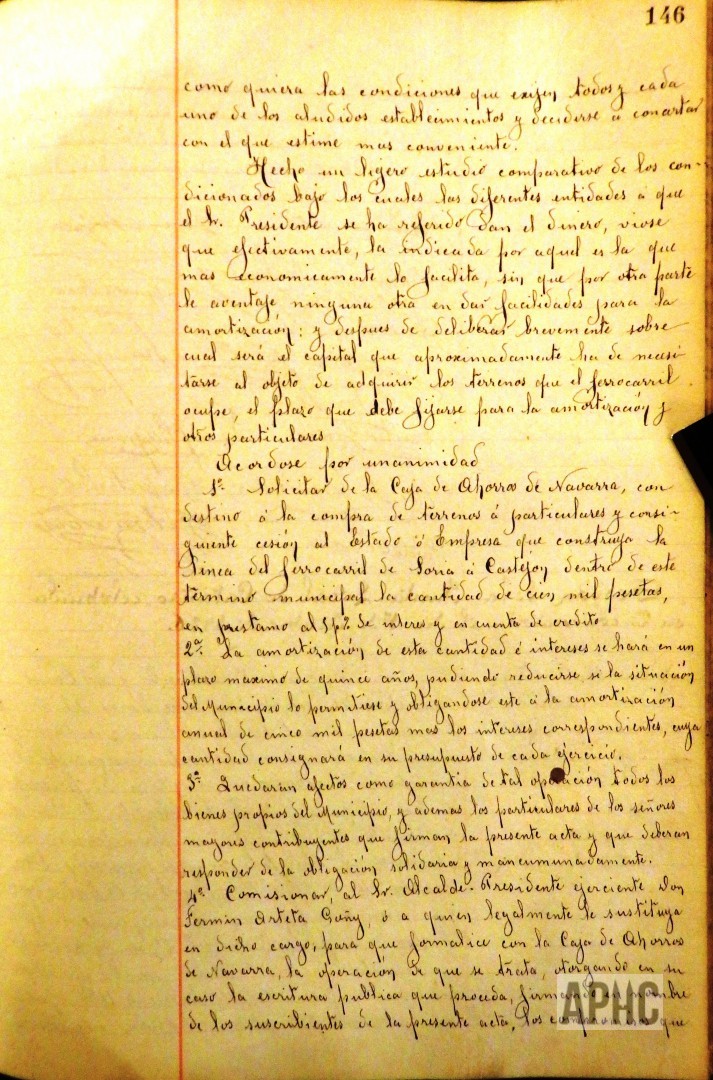 146
como quiera las condiciones que exijen todos y cada
uno de los aludidos establecimientos y decidirse á concertar
con el que estime mas conveniente.
Hecho un ligero estudio comparativo de los con-
dicionados bajo los cuales las diferentes entidades á que
el Sr. Presidente se ha referido dan el dinero, viose
que efectivamente, la indicada por aquel es la que
mas economicamente lo facilita, sin que por otra parte
le aventaje ninguna otra en dar facilidades para la
amortización: y despues de deliberar brevemente sobre
cual será el capital que aproximadamente ha de necesi
tarse al objeto de adquirir los terrenos que el ferrocarril
ocupe, el plazo que debe fijarse para la amortización y
otros particulares
Acordose por unanimidad
1º Solicitar de la Caja de Ahorros de Navarra, con
destino á la compra de terrenos á particulares y consi-
guiente cesión al Estado ó Empresa que construya la
linea del ferrocarril de Soria á Castejon dentro de este
término municipal la cantidad de cien mil pesetas,
en prestamo al % de interes y en cuenta de credito
2ª La amortización de esta cantidad é intereses se hará en un
plazo maximo de quince años, pudiendo reducirse si la situación
del Municipio lo permitiese y obligandose este á la amortización
anual de cinco mil pesetas mas los intereses correspondientes, cuya
cantidad consignará en su presupuesto de cada ejercicio.
3ª Quedaran afectos como garantia de tal operación todos los
bienes propios del Municipio, y ademas los particulares de los señores
mayores contribuyentes que firman la presente acta y que deberan
responder de la obligación solidaria y mancumunadamente.
4º Comisionar, al Sr. Alcalde-Presidente ejerciente Don
Fermin Arteta Goñy, ó a quien legalmente le sustituya
en dicho cargo, para que formalice con la Caja de Ahorros
de Navarra, la operación de que se trata, otorgando en su
caso la escritura publica que proceda, firmando en nombre
de los suscribientes de la presente acta, los compromisos que
APHC